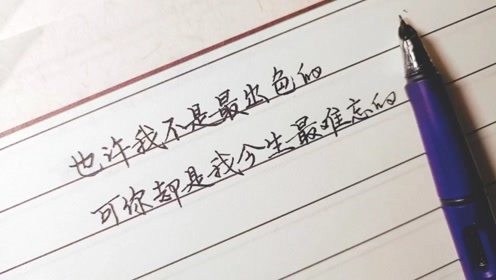 也许我不是最出色的
可你却是我今生最难忘的